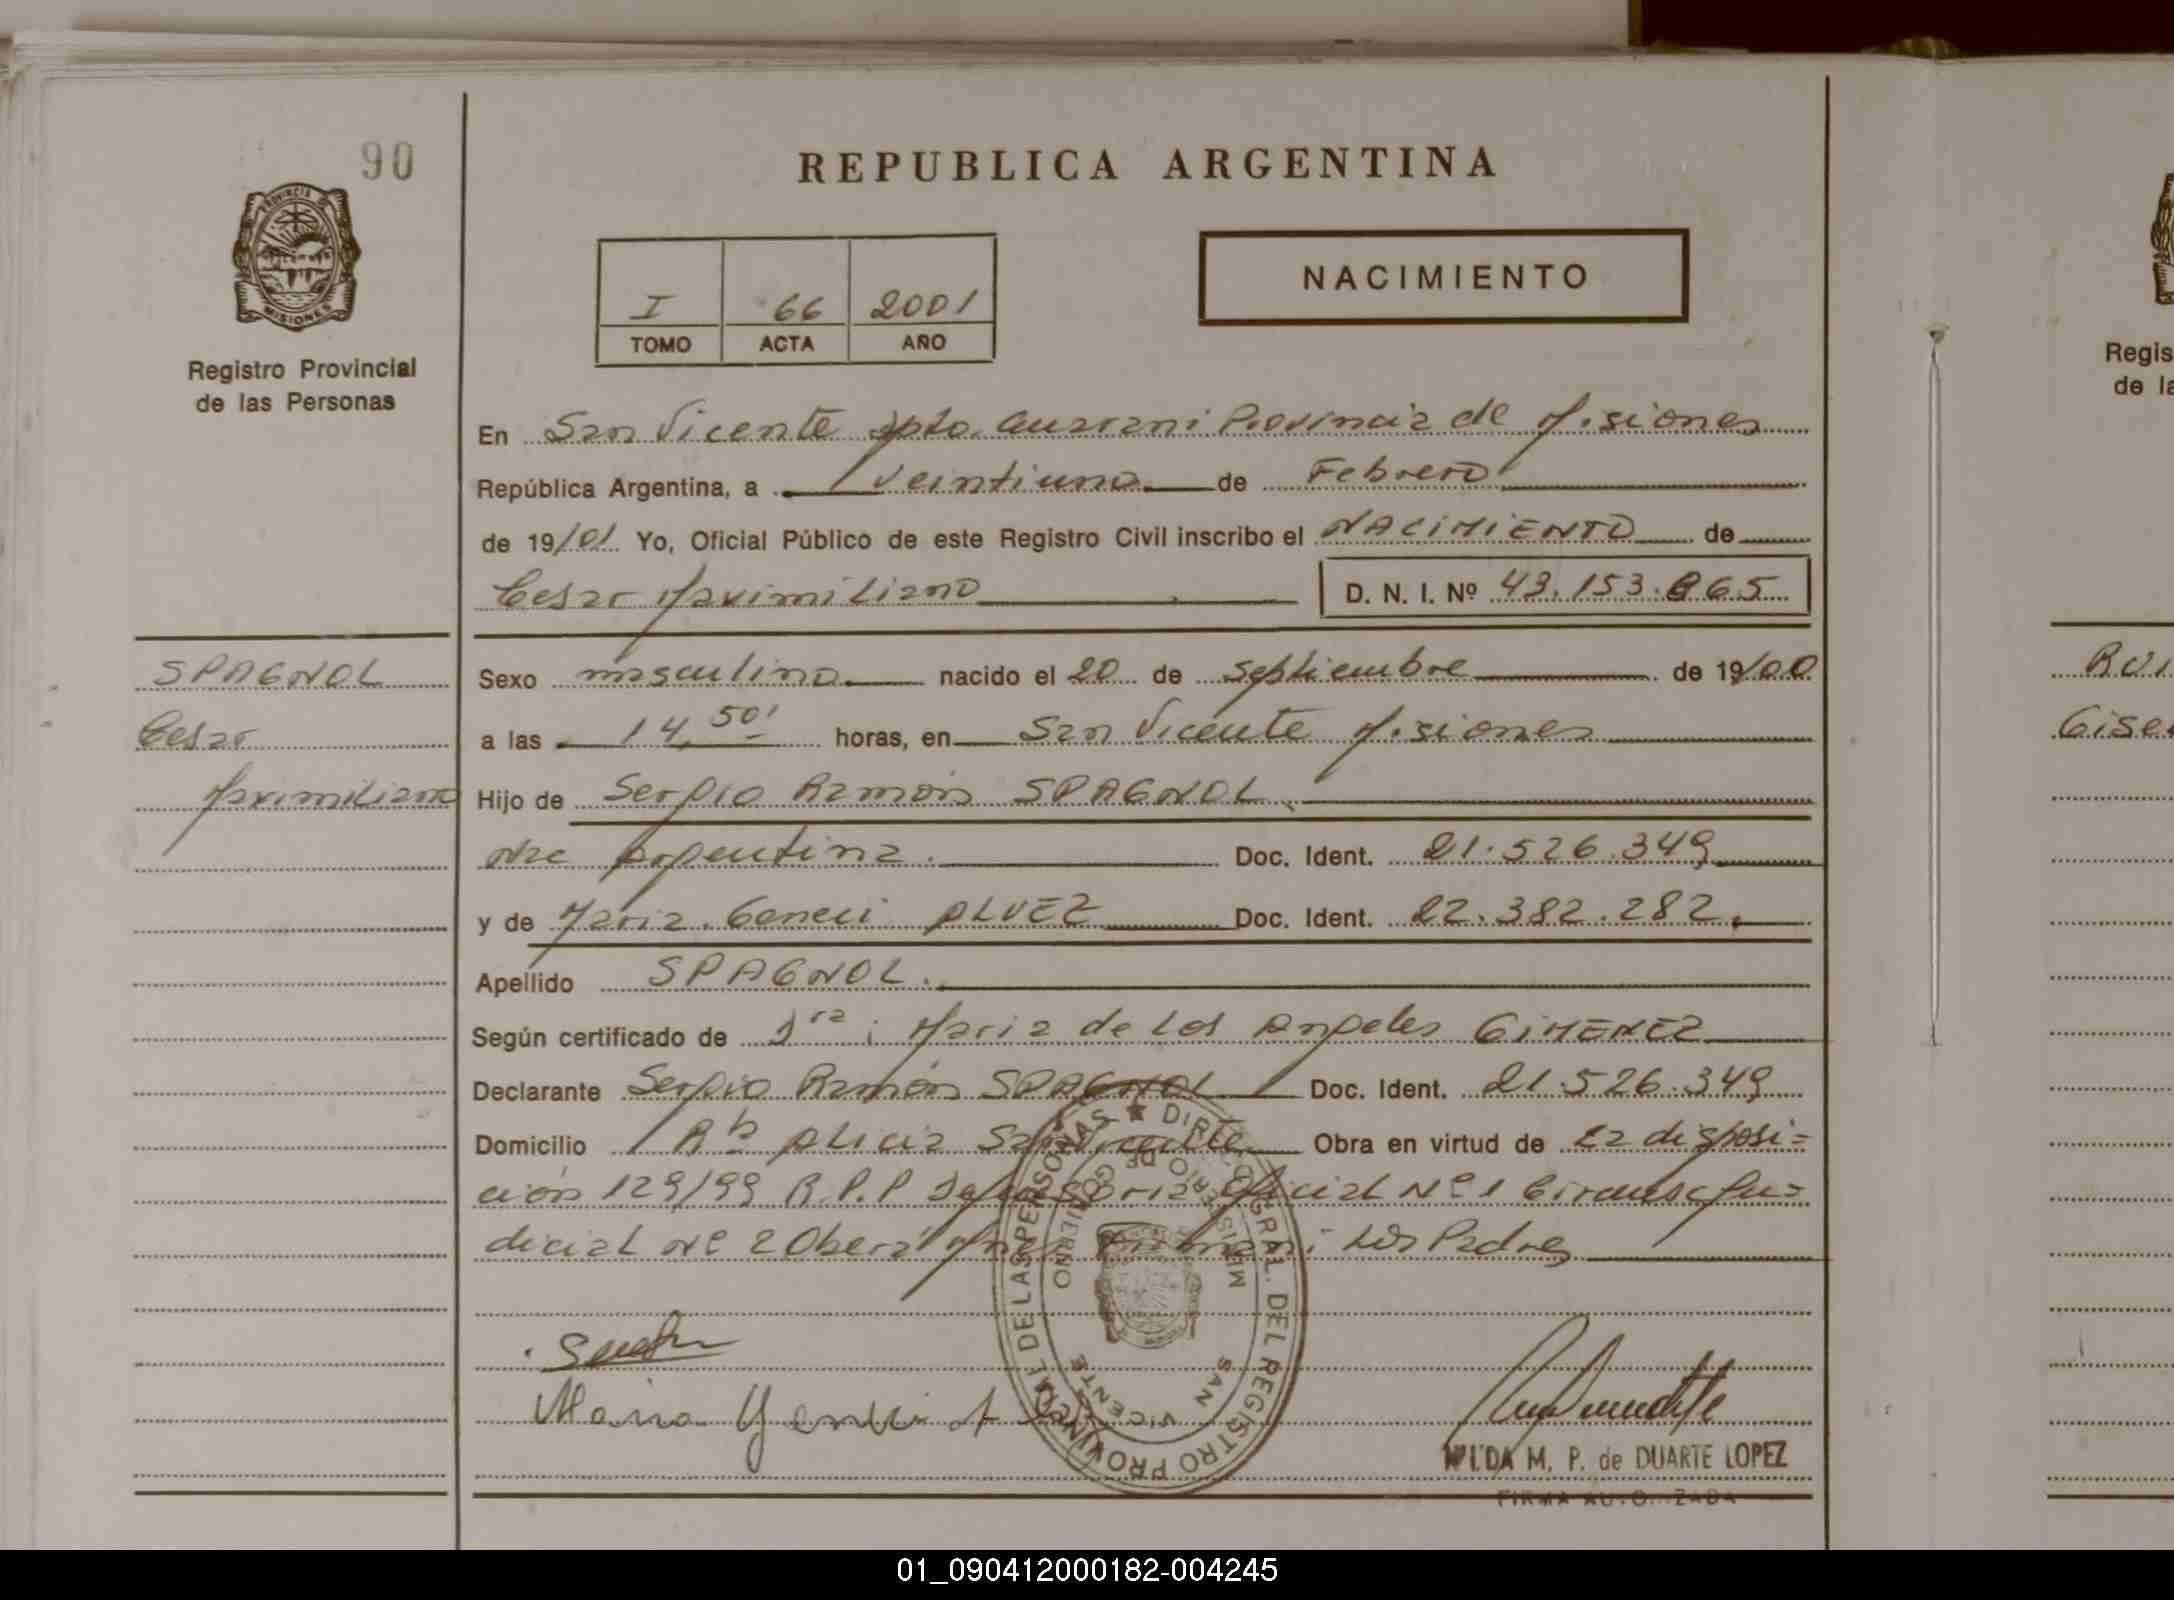 90
REPUBLICA ARGENTINA
PROVINCIA DE
MISIONES
Registro Provincial
de las Personas
I 66 2001
TOMO ACTA AÑO
NACIMIENTO
En San Vicente Dpto. Guarani Provincia de Misiones
República Argentina, a veintiuno de Febrero
de 19/01 Yo, Oficial Público de este Registro Civil inscribo el NACIMIENTO de
Cesar Maximiliano D. N. I. Nº 43.153.865
SPAGNOL
Cesar
Maximiliano
Sexo masculino nacido el 20 de Septiembre de 19/00
a las 14,50' horas, en San Vicente Misiones
Hijo de Sergio Ramón SPAGNOL
Nac Argentina. Doc. Ident. 21.526.349
y de Maria Geneci ALVEZ Doc. Ident. 22.382.282.
Apellido SPAGNOL.
Según certificado de Dra: Maria de los Angeles GIMENEZ
Declarante Sergio Ramón SPAGNOL Doc. Ident. 21.526.349
Domicilio Bº Alicia San Vicente Obra en virtud de la disposi=
ción 129/99 R.P.P Defensoria Oficial Nº 1 Circunsc Ju=
dicial Nº 2 Oberá Mnes Firman: Los Padres
Maria
DIREC. GRAL. DEL REGISTRO PROVINCIAL DE LAS PERSONAS
MINISTERIO DE GOBIERNO
SAN VICENTE
M. P. de DUARTE LOPEZ
FIRMA AUTORIZADA
Regis
de la
Gise
01_090412000182-004245